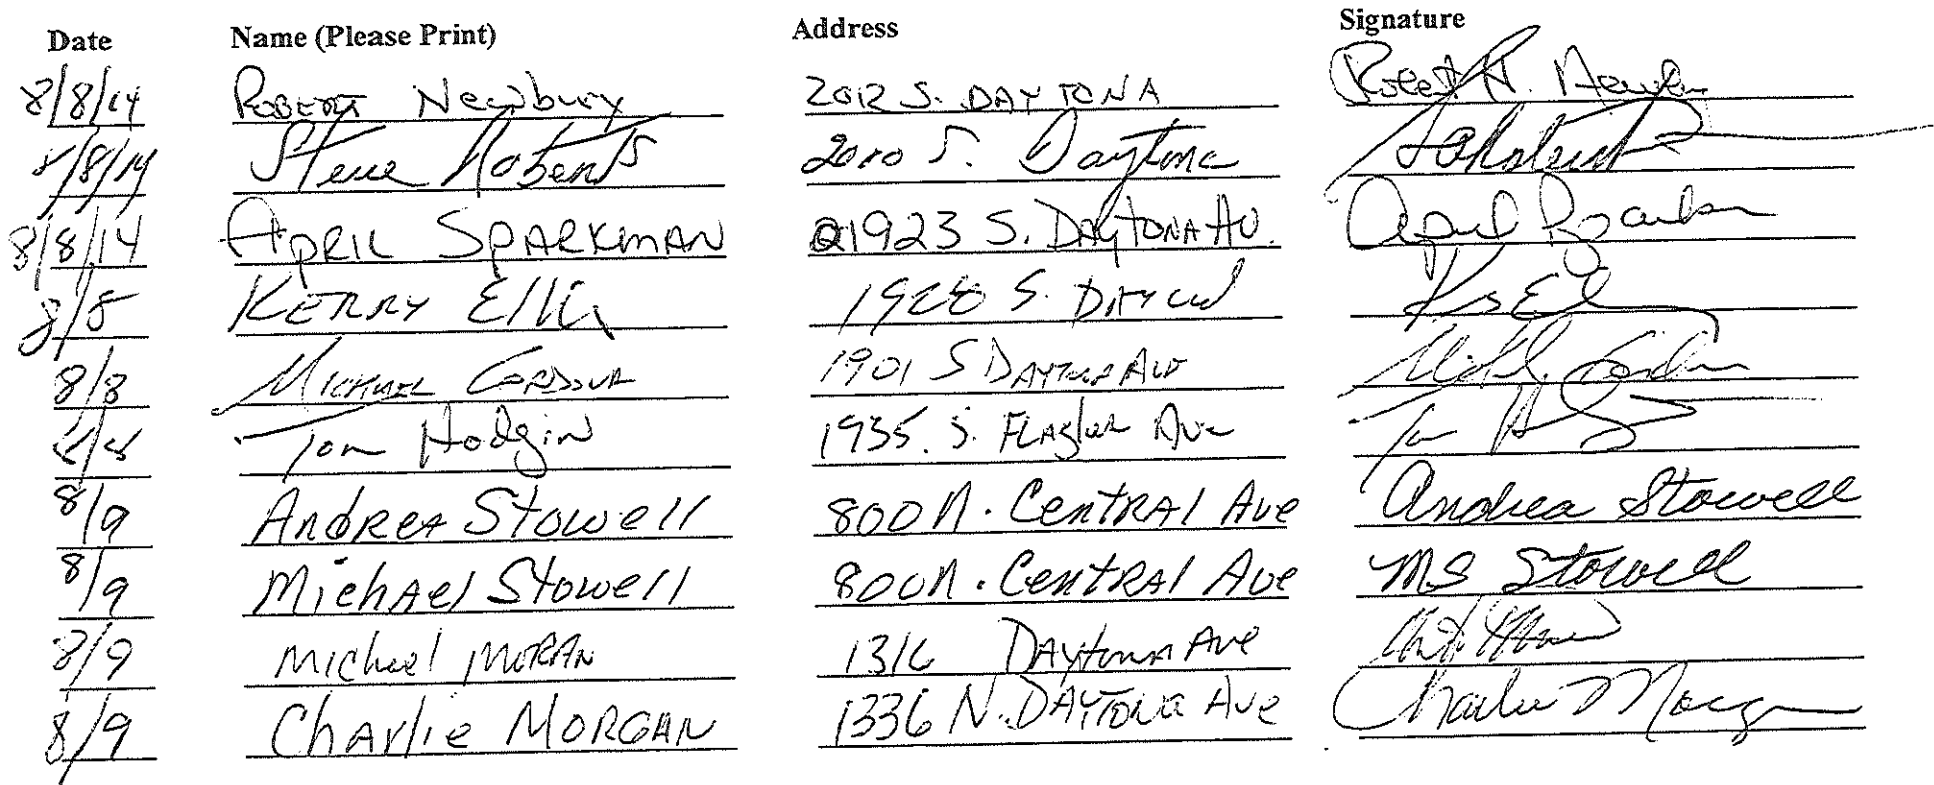 Date Name (Please Print) Address Signature
8/8/14 ROBERT Newbury 2012 S. DAYTONA Robert R. Newbury
8/8/14 Steve Roberts 2010 S. Daytona
8/8/14 APRIL SPARKMAN 1923 S. DAYTONA AV. April Sparkman
8/8 KERRY Ellis 1928 S.
8/8 MICHAEL 1901 S DAYTONA AVE
8/8 Tom Hodgin 1935 S. FLAGLER Ave Tom
8/9 ANDREA Stowell 800 N. CENTRAl Ave Andrea Stowell
8/9 MichAel Stowell 800 N. CENTRAl Ave MS Stowell
8/9 Michael MORAN 1316 DAytona Ave
8/9 Charlie MORGAN 1336 N. DAYTONA Ave Charlie Morgan